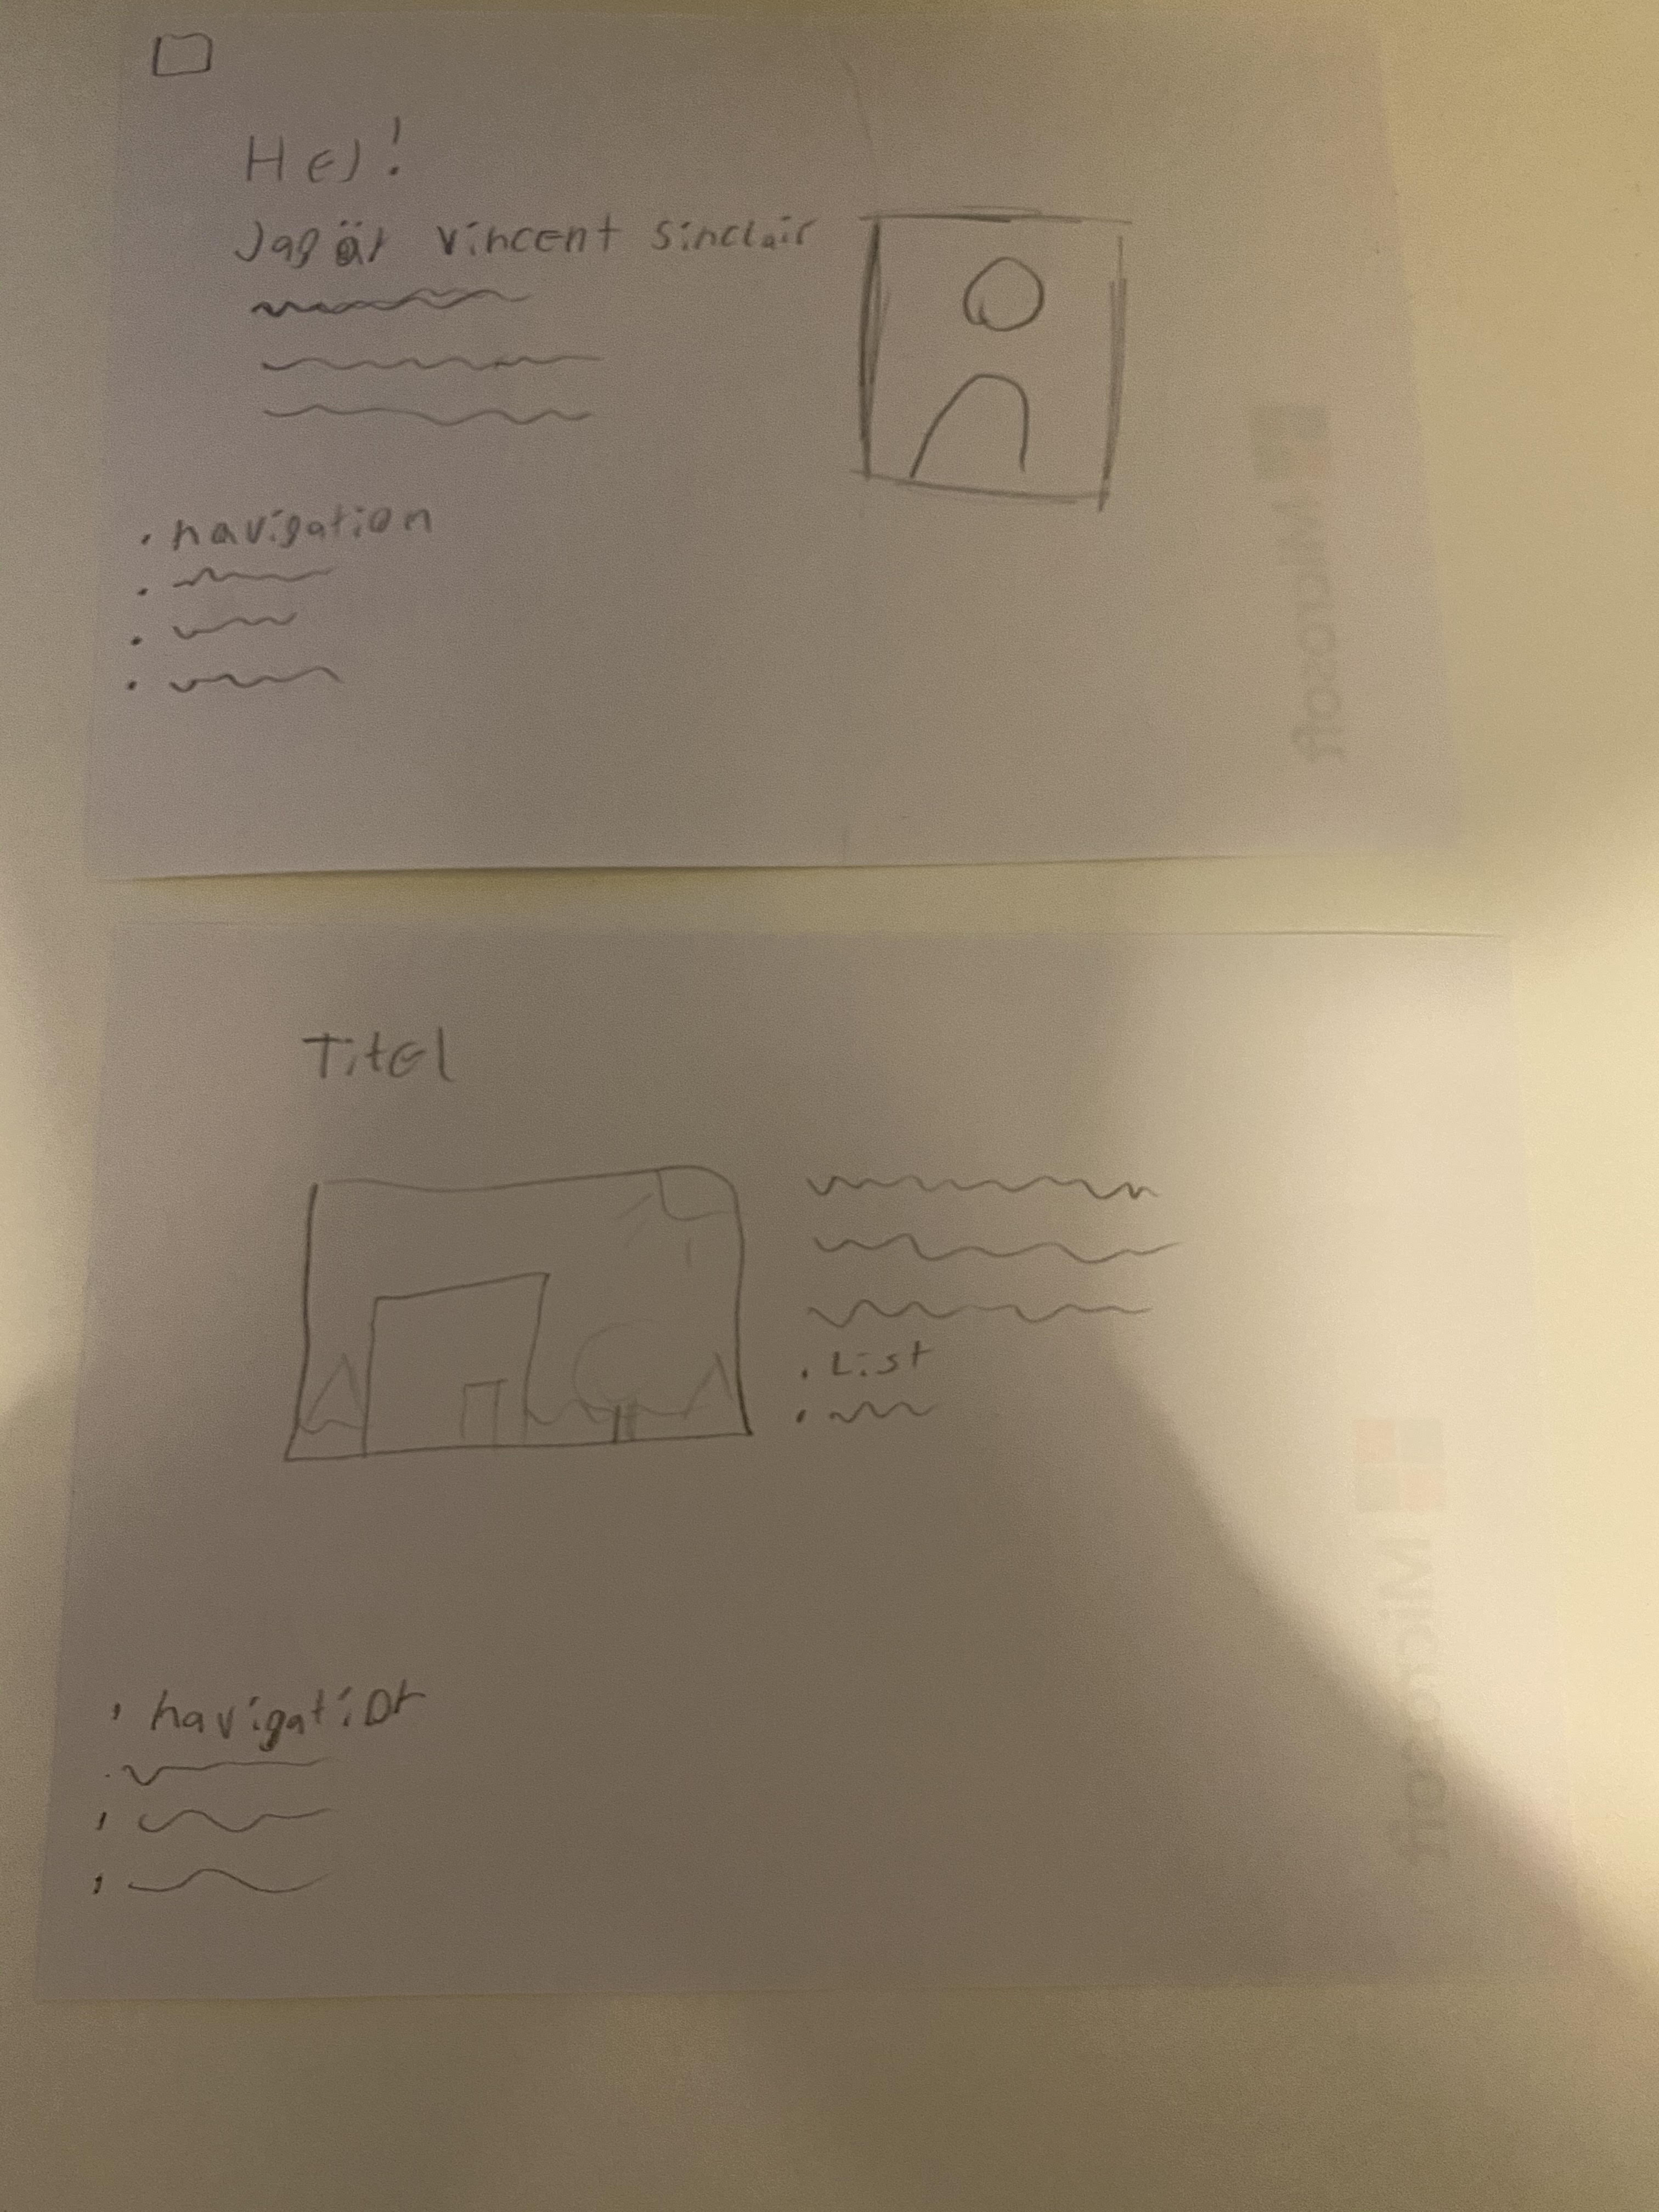 Hej!
Jag är Vincent Sinclair
• navigation
Microsoft
Titel
• List
• navigation
Microsoft